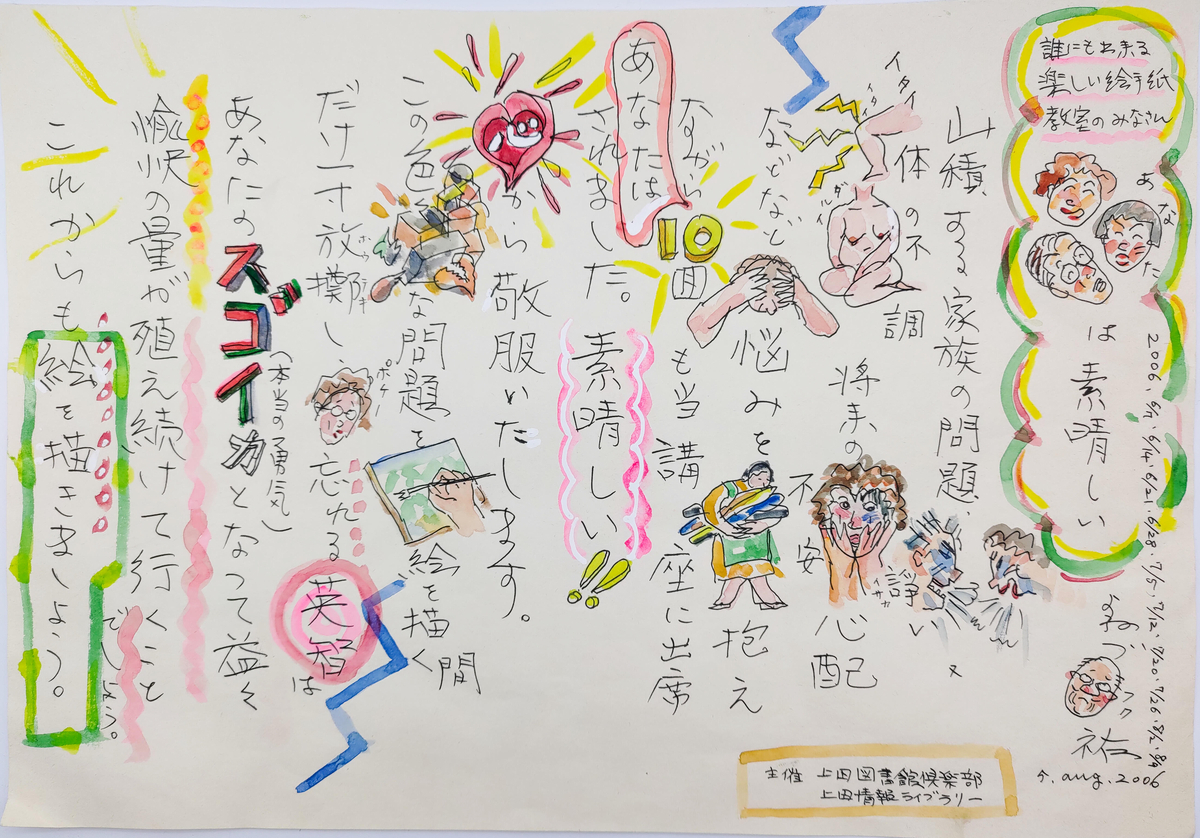 誰にも出来る
楽しい絵手紙
教室のみなさん
あなた
は素晴しい
2006. 6/7. 6/14. 6/21. 6/28. 7/5. 7/12. 7/20. 7/26. 8/2. 8/9
フク
祐
9. aug. 2006
山積する家族の問題、
諍い
イサカ
イタイ
イタ
ダルイ
体の不調
将来の不安
心配
などなど
悩みを抱え
ながら
10回も当講座に出席
あなたは
されました。素晴しい!!
から敬服いたします。
この色
な問題を絵を描く間
だけ一寸放擲し、忘れる英智は
ポケー
あなたのスゴイ力となって益々
(本当の勇気)
愉快の量が殖え続けて行くこと
でしょう。
これからも絵を描きましょう。
主催 上田図書館倶楽部
上田情報ライブラリー